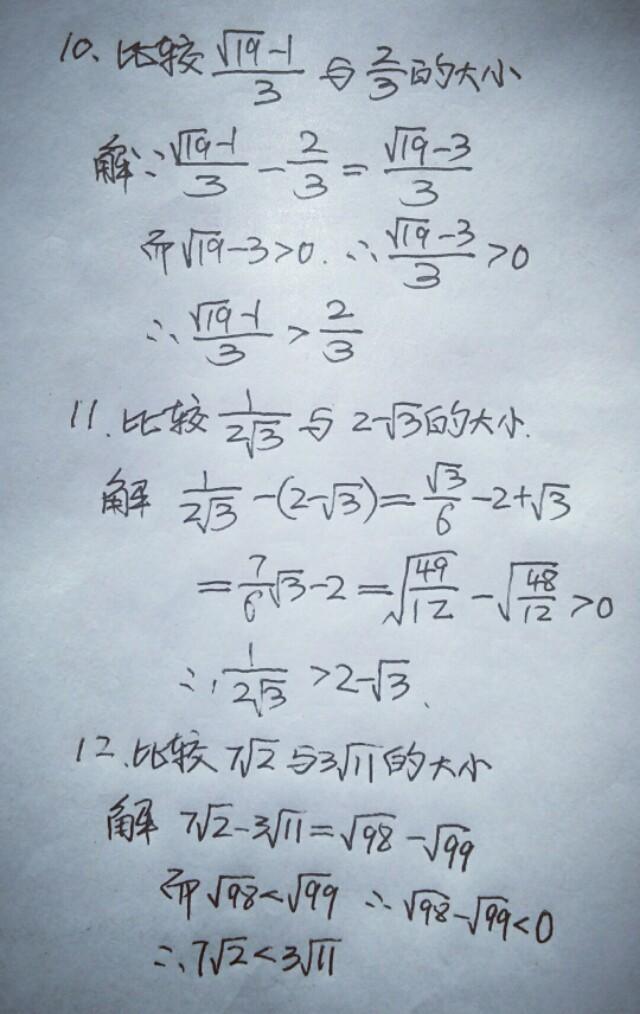 10、比较 (√19-1)/3 与 2/3 的大小
解∵ (√19-1)/3 - 2/3 = (√19-3)/3
而√19-3>0. ∴ (√19-3)/3 >0
∴ (√19-1)/3 > 2/3
11.比较 1/(2√3) 与 2-√3的大小.
解 1/(2√3) -(2-√3)= √3/6 -2+√3
= 7/6 √3-2 = √(49/12) - √(48/12) >0
∴ 1/(2√3) >2-√3.
12、比较 7√2与3√11的大小
解 7√2-3√11=√98-√99
而√98<√99 ∴√98-√99<0
∴7√2<3√11